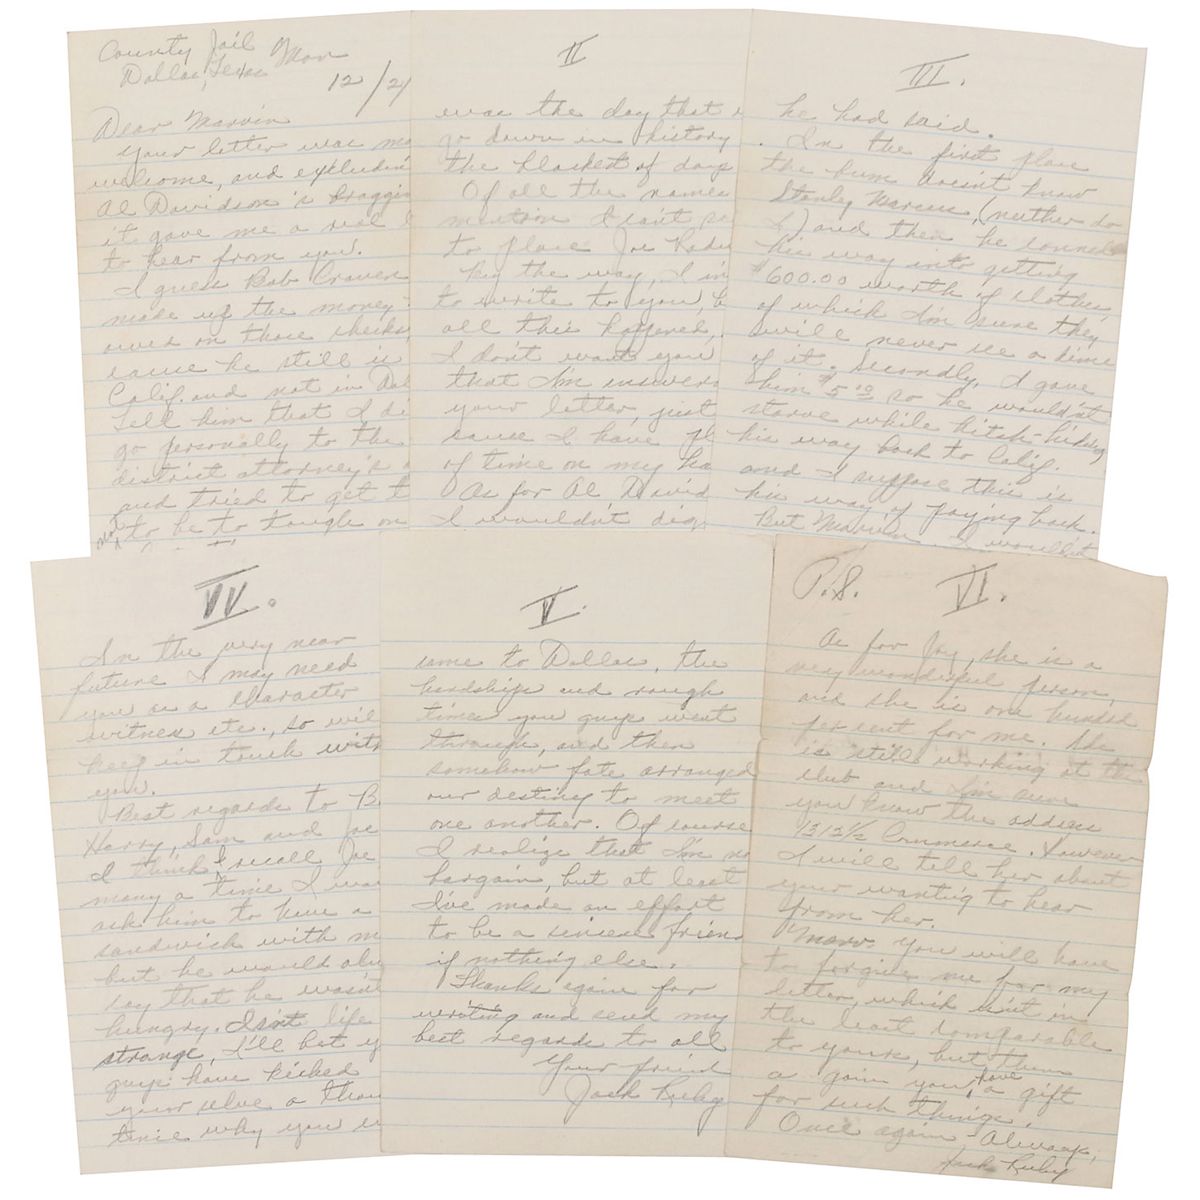 County Jail Mon
Dallas, Texas
12/2
Dear Marvin
Your letter was mo
welcome, and excluding
Al Davidson's braggin
it gave me a real
to hear from you.
I guess Bob Craven
made up the money
owed on those checks
cause he still is
Calif. and not in Dal
Tell him that I di
go personally to the
district attorney's
and tried to get t
not to be to tough on
II
was the day that
go down in history
the blackest of days
Of all the names
mention I can't se
to place Joe Rady
By the way, I in
to write to you, b
all this happened,
I don't want you
that I'm answer
your letter, just
cause I have pl
of time on my ha
As for Al David
I wouldn't dig
III.
he had said.
In the first place
the bum doesn't know
Stanley Marcus, (neither do
I) and then he conned
his way into getting
$600.00 worth of clothes
of which I'm sure they
will never see a dime
of it. Secondly, I gave
him $5.00 so he wouldn't
starve while hitch-hiking
his way back to Calif.
and I suppose this is
his way of paying back.
But Marvin I wouldn't
IV.
In the very near
future I may need
you as a character
witness etc., so wil
keep in touch with
you.
Best regards to B
Harry, Sam and Joe
I think I recall Joe
many a time I wa
ask him to have a
sandwich with m
but he would alw
say that he wasn
hungry. Isn't life
strange, I'll bet y
guys have kicked
your selve a thou
times why you
V.
came to Dallas, the
hardships and rough
times you guys went
through, and then
somehow fate arranged
our destiny to meet
one another. Of course
I realize that I'm no
bargain, but at least
I've made an effort
to be a sincere friend
if nothing else.
Thanks again for
writing and send my
best regards to all
Your friend
Jack Ruby
P.S. VI.
As for Joy, she is a
very wonderful person,
and she is one hundred
per cent for me. She
is still working at the
club and I'm sure
you know the address
1312½ Commerce. However
I will tell her about
your wanting to hear
from her.
Marv. you will have
to forgive me for my
letter, which isn't in
the least comparable
to yours, but then
again you have a gift
for such things.
Once again - Always,
Jack Ruby